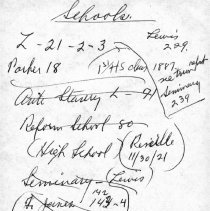 Schools.
Z-21-2-3
Lewis
229.
Parker 18
1st HS class 1887
see
Seminary
239
Slavery
Reform School 80
High School
Reveille
11/30/21
Seminary Lewis
142
143-4